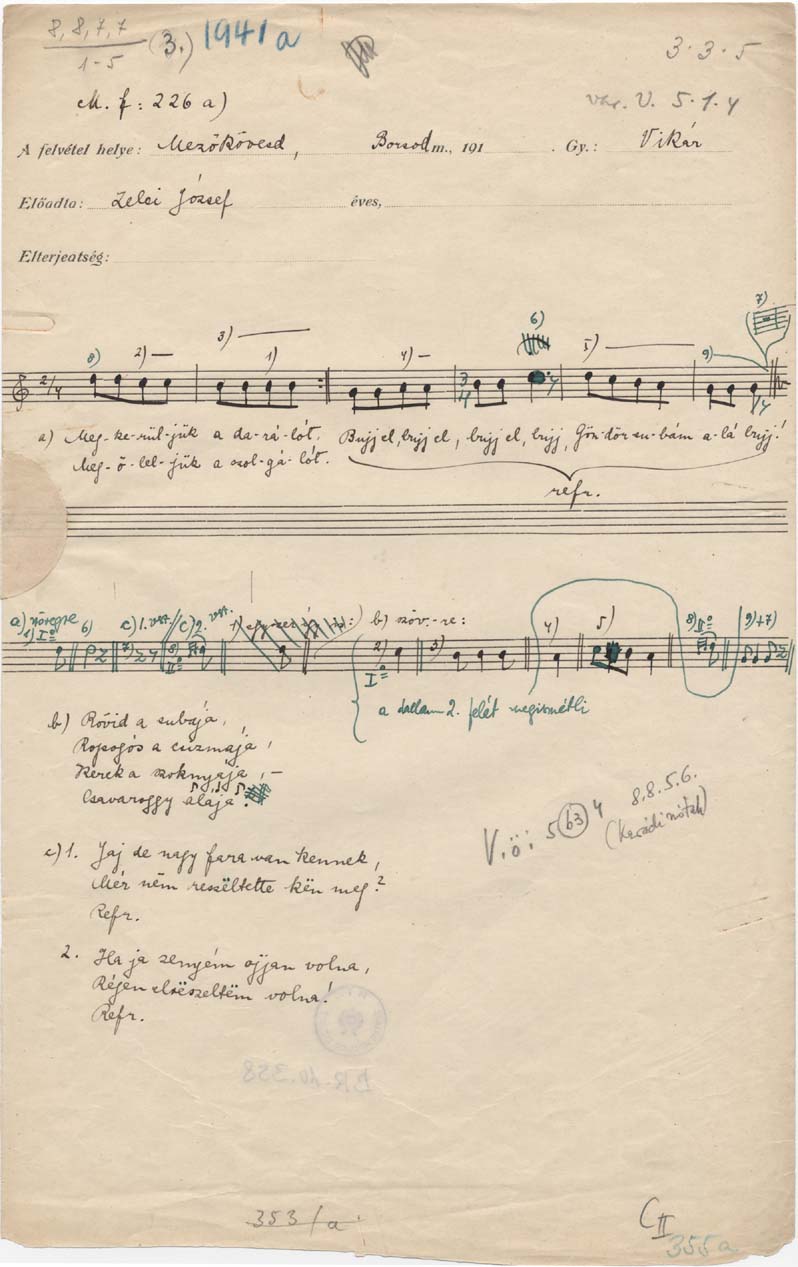 8, 8, 7, 7
1-5
(3.) 1941 a
3·3·5
M. f: 226 a)
V. 5·1·4
A felvétel helye: Mezőkövesd, Borsod m., 191 . Gy.: Vikár
Előadta: Zelei József éves,
Elterjedtség:
8) 2) 3) 1) 4) 6) 5) 9) 7)
2/4 3/4
a) Meg-ke-rül-jük a da-rá-lót. Bujj el, bujj el, bujj el, bujj, Gön-dör su-bám a-lá bujj!
Meg-ö-lel-jük a szol-gá-lót.
refr.
a) szövegre 1) I° 6) c) 1. vst. 7) c) 2. vst. 8) II° b) szöv.-re: 2) I° 3) 4) 5) 8) II° 9)+7)
a dallam 2. felét megismétli
b) Rövid a subája,
Ropogós a csizmája,
Kerek a szoknyája, –
Csavaroggy alája.
V.ö: 5 (b3) 4 8.8.5.6.
c) 1. Jaj de nagy fara van kennek,
Mér nëm reszëltette kën meg?
Refr.
2. Ha ja zenyém ojjan volna,
Régen elrëszeltëm volna!
Refr.
353/a
C II
355a